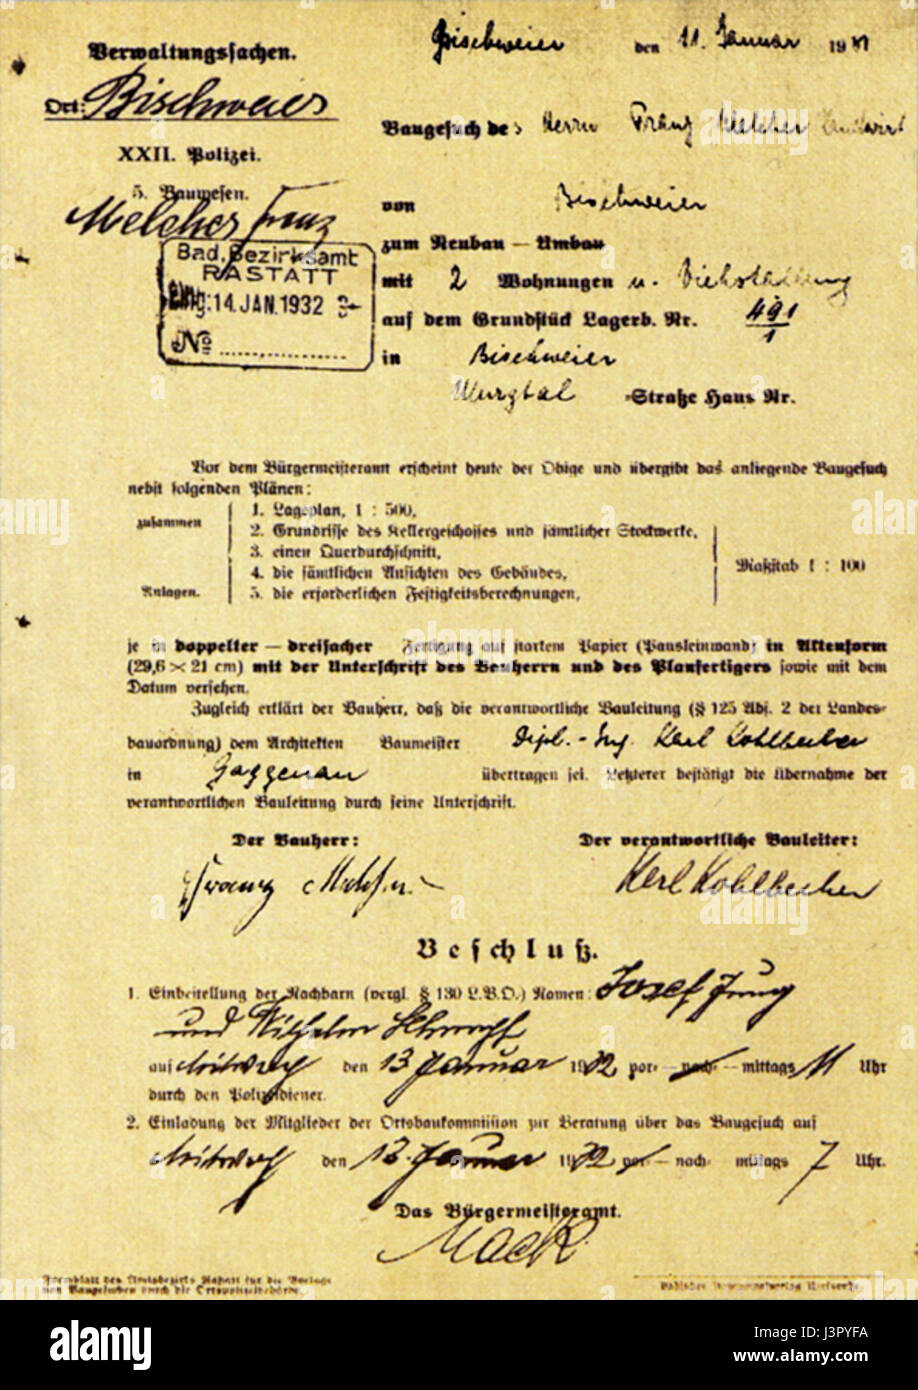 Verwaltungssachen.
Ort: Bischweier
XXII. Polizei.
5. Bauwesen.
Melcher Franz
Bad. Bezirksamt
RASTATT
Eing: 14. JAN. 1932
No
Bischweier den 11. Januar 19
Baugesuch des Herrn Franz Melcher Landwirt
von Bischweier
zum Neubau – Umbau
mit 2 Wohnungen u. Viehstallung
auf dem Grundstück Lagerb. Nr. 491/1
in Bischweier
Murgtal -Straße Haus Nr.
Vor dem Bürgermeisteramt erscheint heute der Obige und übergibt das anliegende Baugesuch
nebst folgenden Plänen:
zusammen
Anlagen.
1. Lageplan, 1 : 500,
2. Grundrisse des Kellergeschosses und sämtlicher Stockwerke,
3. einen Querdurchschnitt,
4. die sämtlichen Ansichten des Gebäudes,
5. die erforderlichen Festigkeitsberechnungen,
Maßstab 1 : 100
je in doppelter – dreifacher Fertigung auf starkem Papier (Pausleinwand) in Aktenform
(29,6 × 21 cm) mit der Unterschrift des Bauherrn und des Planfertigers sowie mit dem
Datum versehen.
Zugleich erklärt der Bauherr, daß die verantwortliche Bauleitung (§ 125 Abs. 2 der Landes-
bauordnung) dem Architekten Baumeister Dipl.-Ing. Karl Kohlbecker
in Gaggenau übertragen sei. Letzterer bestätigt die Übernahme der
verantwortlichen Bauleitung durch seine Unterschrift.
Der Bauherr: Der verantwortliche Bauleiter:
Franz Melcher Karl Kohlbecker
Beschluß.
1. Einbestellung der Nachbarn (vergl. § 130 L.B.O.) Namen: Josef Jung
und Wilhelm
auf Mittwoch den 13 Januar 1932 vor- – nach- – mittags 11 Uhr
durch den Polizeidiener.
2. Einladung der Mitglieder der Ortsbaukommission zur Beratung über das Baugesuch auf
Mittwoch den 13. Januar 1932 vor- – nach- mittags 7 Uhr.
Das Bürgermeisteramt.
Mack
Formblatt des Amtsbezirks Rastatt für die Vorlage
von Baugesuchen durch die Ortspolizeibehörde.
Badischer Kommunalverlag Karlsruhe
alamy
alamy
Image ID: J3PYFA
www.alamy.com